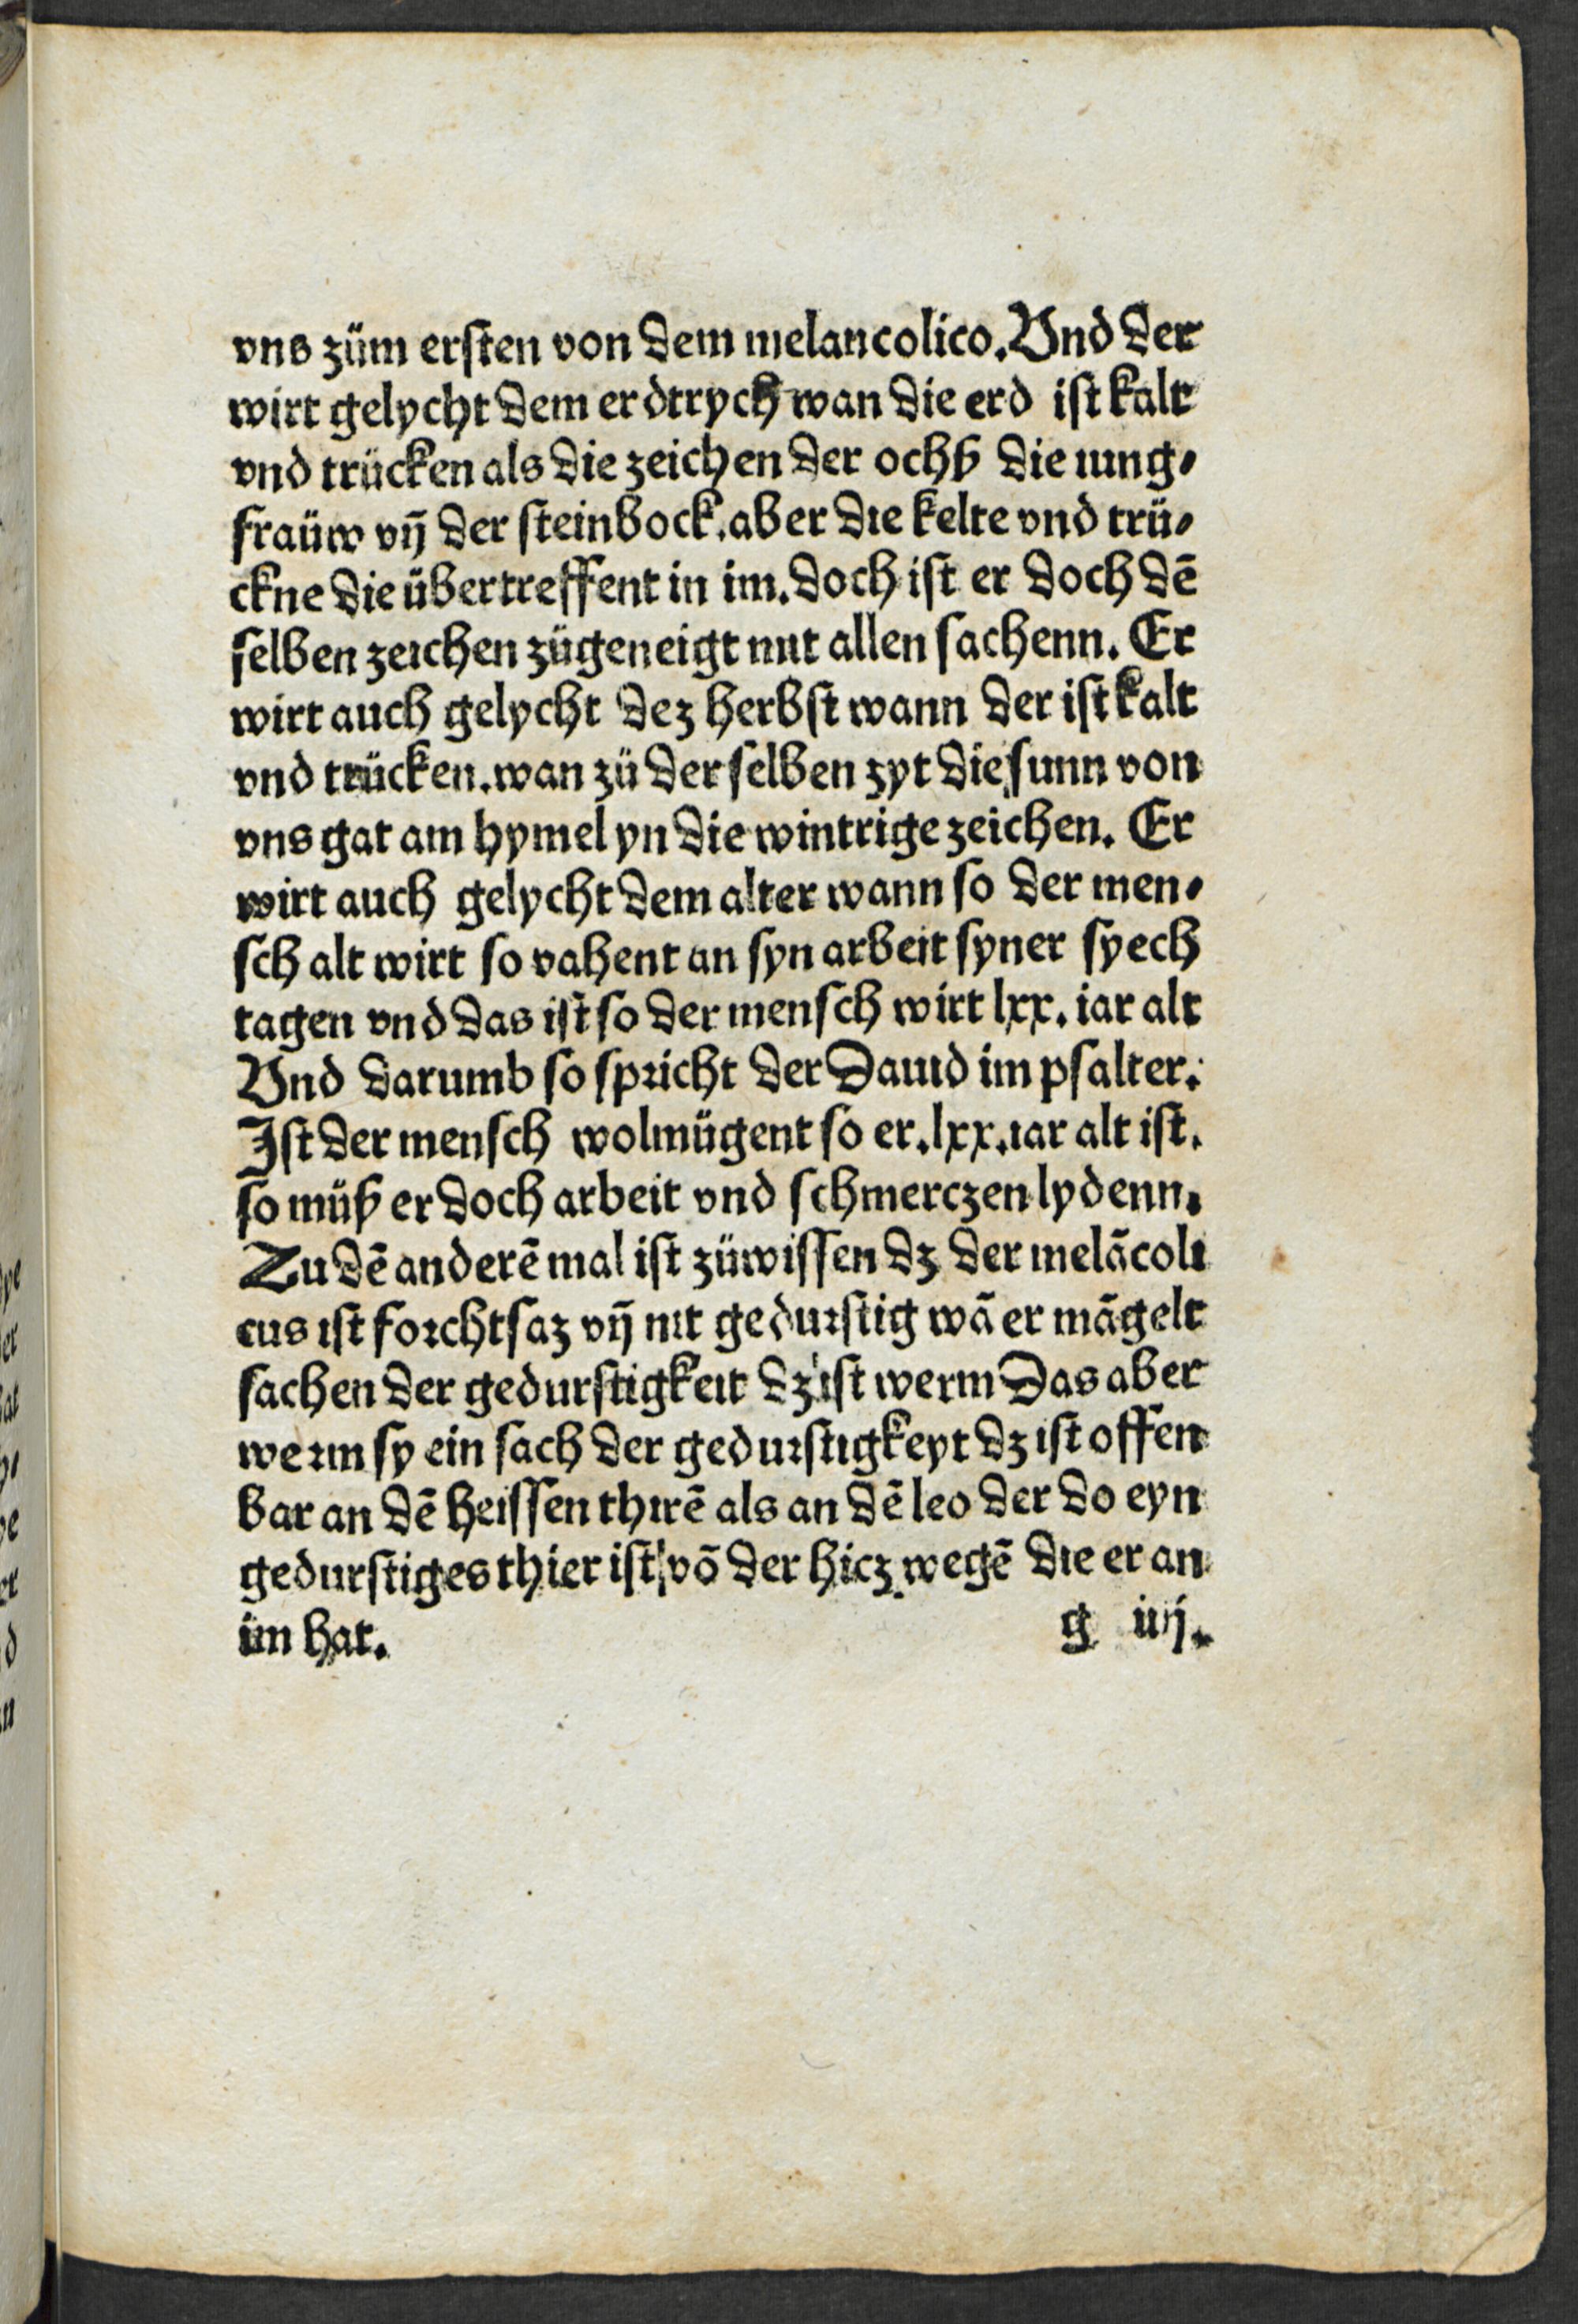 vns züm ersten von dem melancolico. Vnd der
wirt gelycht dem erdtrych wan die erd ist kalt
vnd trücken als die zeichen der ochß die iung⸗
fraüw vñ der steinbock. aber die kelte vnd trü⸗
ckne die übertreffent in im. doch ist er doch dē
selben zeichen zügeneigt mit allen sachenn. Er
wirt auch gelycht dez herbst wann der ist kalt
vnd trücken. wan zü der selben zyt die sunn von
vns gat am hymel yn die wintrige zeichen. Er
wirt auch gelycht dem alter wann so der men⸗
sch alt wirt so vahent an syn arbeit syner syech
tagen vnd das ist so der mensch wirt lxx. iar alt
Vnd darumb so spricht der Dauid im psalter.
Ist der mensch wolmügent so er. lxx. iar alt ist.
so müß er doch arbeit vnd schmerczen lydenn.
Zu dē anderē mal ist züwissen dz der melācoli
cus ist forchtsaz vñ nit gedurstig wā er māgelt
sachen der gedurstigkeit dz ist werm Das aber
werm sy ein sach der gedurstigkeyt dz ist offen
bar an dē heissen thirē als an dē leo der do eyn
gedurstiges thier ist vō der hicz wegē die er an
im hat.
g iiij.